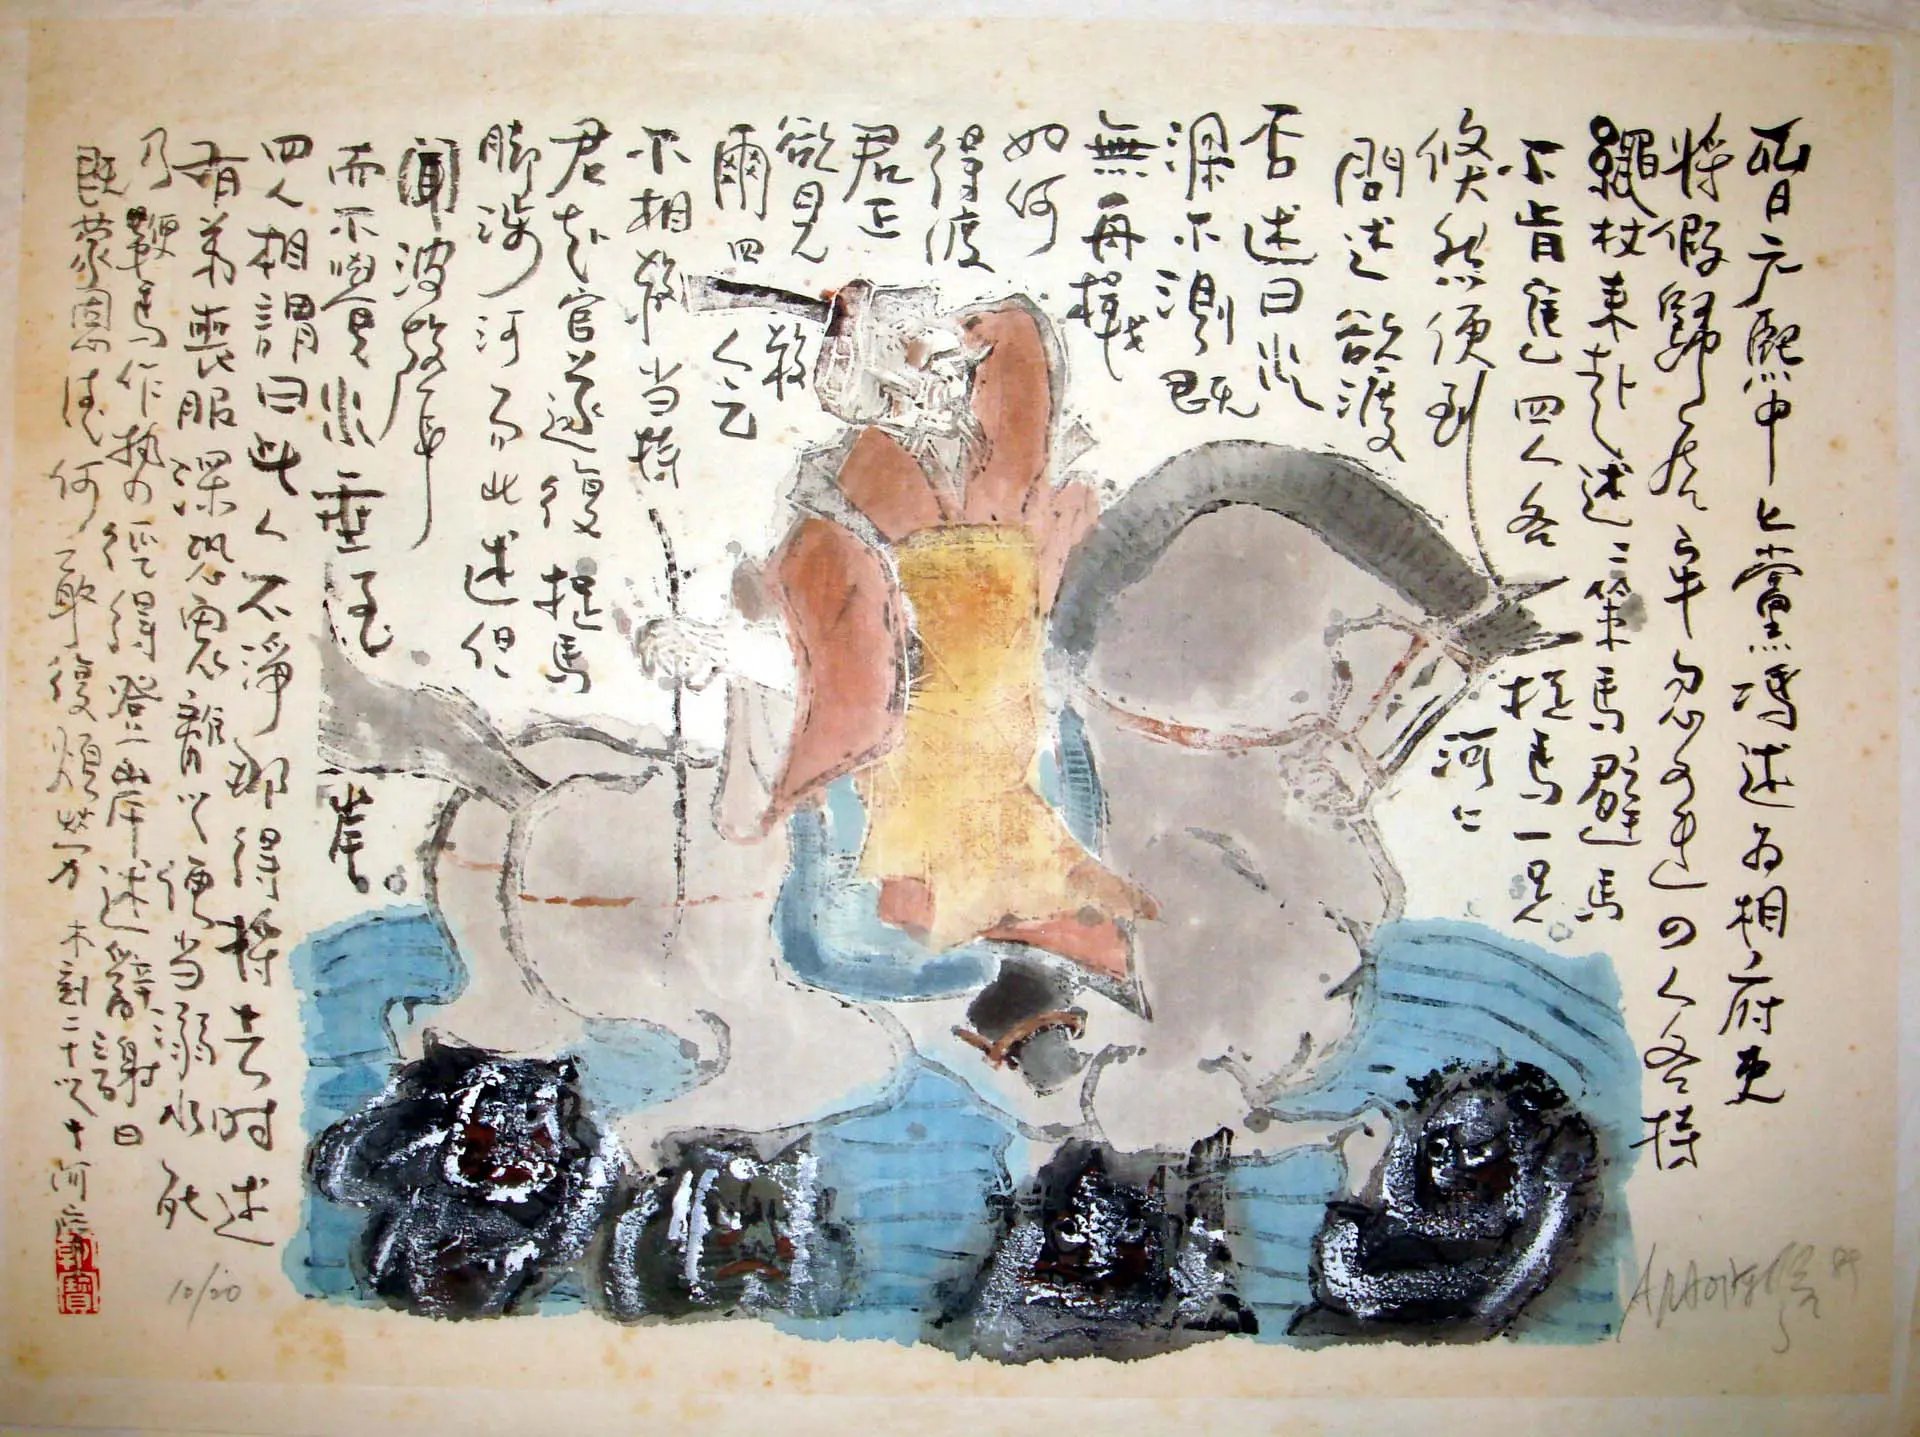 晉元熙中上黨馮述为相府吏
將假歸虎牢忽逢四人各持
繩杖来赴述述策馬避馬
不肯進四人各捉馬一足
倏然便到河上
問述欲渡
否述曰水
深不測既
無舟楫
如何
得渡
君正
欲見殺
爾四人云
不相殺当持
君赴官遂復捉馬
脚涉河而北述但
聞波浪声
而不覺水垂至岸
四人相謂曰此人不淨那得將去时述
有弟喪服深恐鬼離之便当溺水死
乃鞭馬作勢徑得登岸述辭謝曰
既蒙恩德何敢復煩勞 木刻二十之十
10/20